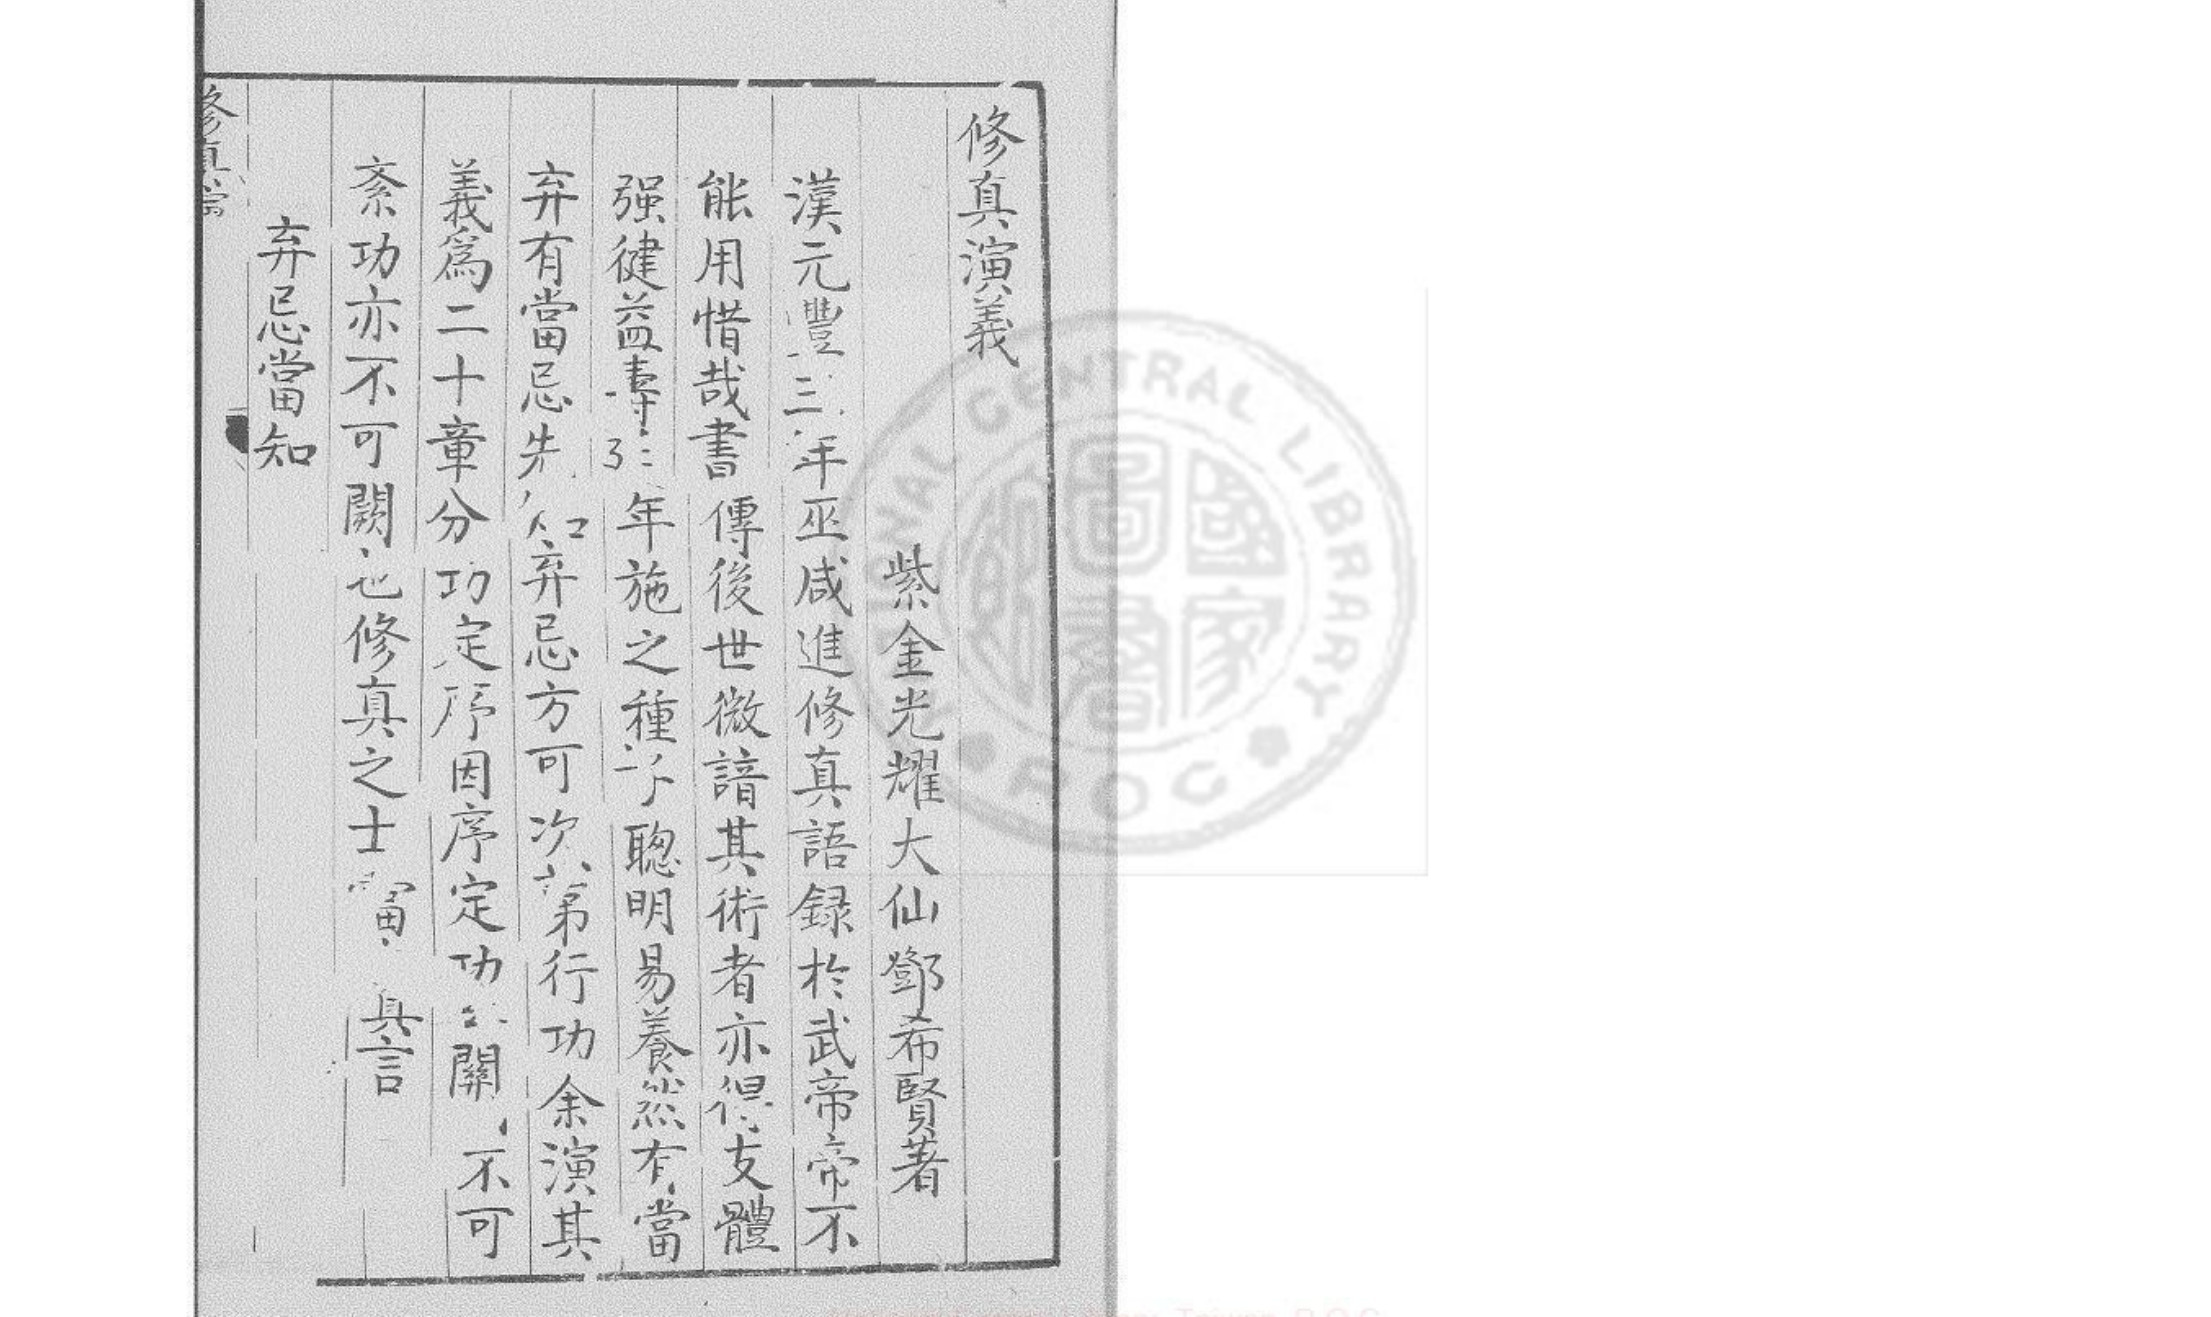 修真演義
紫金光耀大仙鄧希賢著
漢元豐三年巫咸進修真語録於武帝帝不
能用惜哉書傳後世微諳其術者亦得支體
强健益壽年施之種子聰明易養然有當
弃有當忌先知弃忌方可次第行功余演其
義爲二十章分功定序因序定功關不可
紊功亦不可闕也修真之士具言
弃忌當知
修真
NATIONAL CENTRAL LIBRARY
ROC
國家圖書館